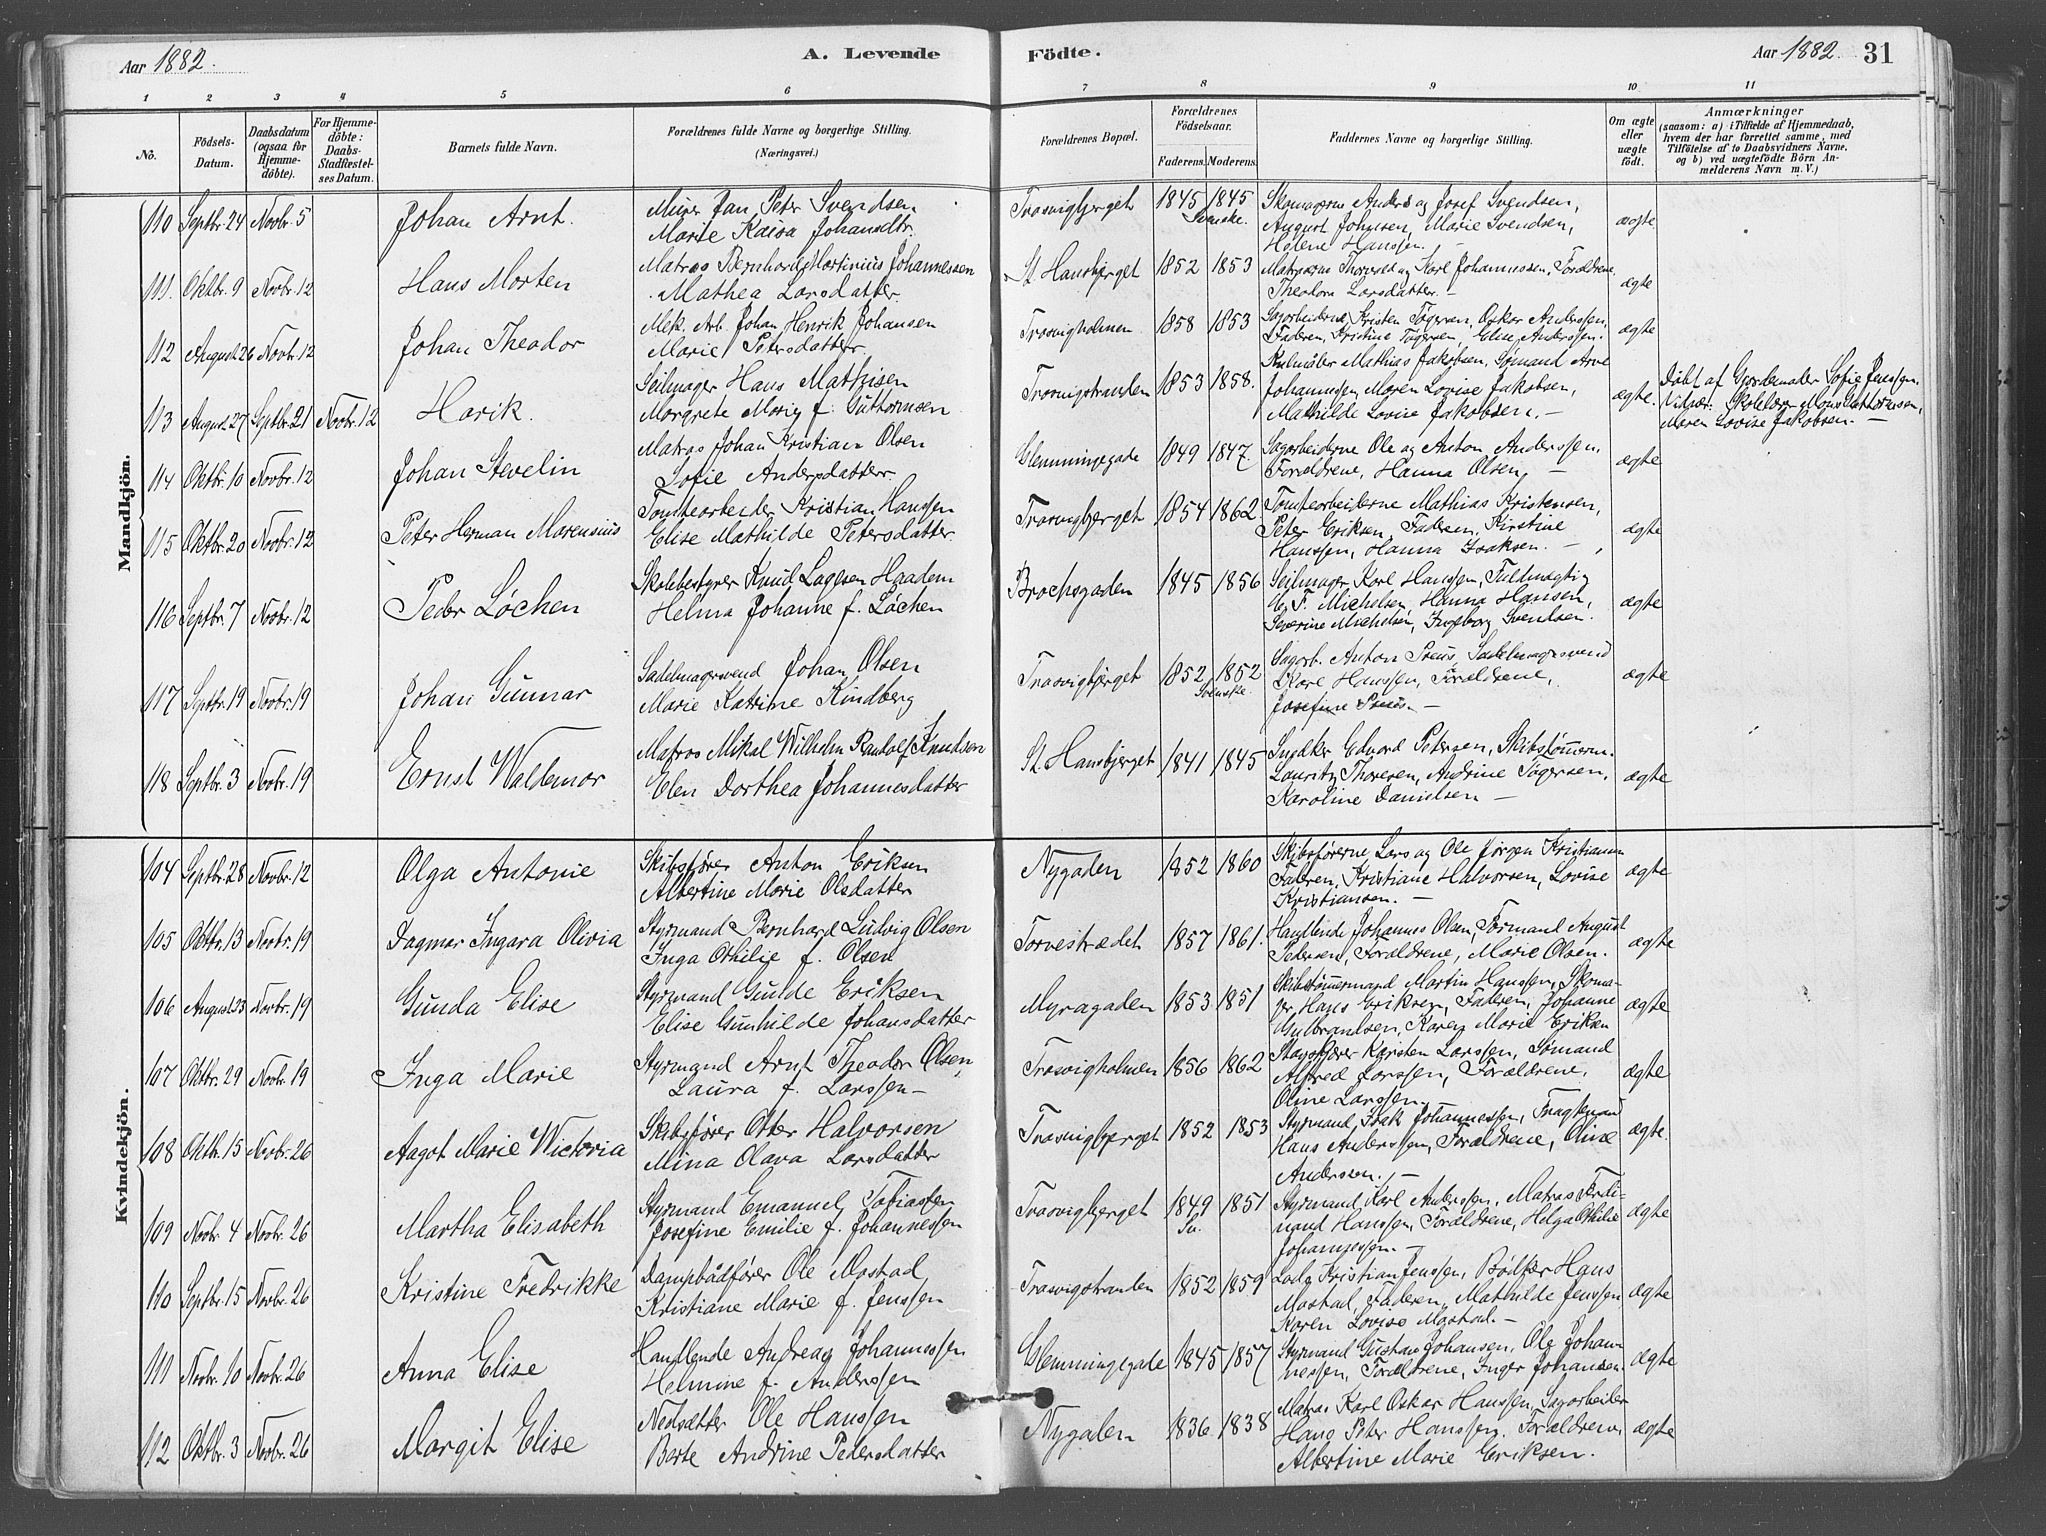 Aar 1882.
A. Levende
Födte.
Aar 1882. 31
1 2 3 4 5 6 7 8 9 10 11
No.
Födsels-Datum.
Daabsdatum (ogsaa for Hjemme-döbte).
For Hjemme-döbte: Daabs-Stadfæstel-ses Datum.
Barnets fulde Navn.
Forældrenes fulde Navne og borgerlige Stilling.
(Næringsvei.)
Forældrenes Bopæl.
Forældrenes Födselsaar.
Faderens. Moderens.
Faddernes Navne og borgerlige Stilling.
Om ægte eller uægte födt.
Anmærkninger
(saasom: a) i Tilfælde af Hjemmedaab,
hvem der har forrettet samme, med
Tilföielse af to Daabsvidners Navne,
og b) ved uægtefödte Börn An-
melderens Navn m. V.)
Mandkjön.
110 Septbr. 24 Novbr. 5 Johan Arnt. Murer Jan Peter Svendsen Trosvigbjerget 1845 1845 Skomagerne Anders og Josef Svendsen,
Marie Kaisa Johansdtr. Svenske. August Johnsen, Marie Svendsen, ægte
Helene Hanssen. —
111. Oktbr. 9 Novbr. 12 Hans Morten Matros Bernhard Martinius Johannessen St. Hansbjerget 1852 1853 Matroserne Thorvald og Karl Johannessen, Forældrene, ægte
Mathea Larsdatter. Theodora Larsdatter. —
112 August 26 Novbr. 12 Johan Theodor Mek. Arb. Johan Henrik Johansen Trosvigholmen 1858 1853 Sagarbeiderne Kristen Tögersen, Oskar Anderssen, ægte
Marie Petersdatter. Faderen, Kristine Tögersen, Elise Anderssen.
113 August 27 Septbr. 21 Novbr. 12 Harik. Seilmager Hans Mathisen Trosvigstranden 1853 1858. Mathias Jakobsen, Sömand Arne ægte. Döbt af Gjordemoder Sofie Jenssen.
Margrete Marie f. Guttormsen Johannessen, Maren Lovise Jakobsen, Vidner: Skolelærer Mons Guttormsen,
Mathilde Lovise Jakobsen. — Maren Lovise Jakobsen. —
114 Oktbr. 10 Novbr. 12 Johan Stevelin Matros Johan Kristian Olsen Clemmingegade 1849 1847. Sagarbeiderne Ole og Anton Anderssen, ægte
Sofie Andersdatter. Forældrene, Hanna Olsen, —
115 Oktbr. 20 Novbr. 12 Peter Herman Marensius Tomtearbeider Kristian Hanssen Trosvigbjerget 1854 1862 Tomtearbeiderne Mathias Kristensen, ægte
Elise Mathilde Petersdatter. Peter Eriksen, Faderen, Kirstine
Hanssen, Hanna Isaksen. —
116 Septbr. 7 Novbr. 12 Peder Löchen Skolebestyrer Knud Lagesen Haadem Brochsgaden 1845 1856 Seilmager Karl Hanssen, Fuldmægtig ægte
Helma Johanne f. Löchen F. Michelsen, Hanna Hansen,
Severine Michelsen, Ingeborg Svendsen.
117 Septbr. 19 Novbr. 19 Johan Gunnar Sadelmagersvend Johan Olsen Trosvigbjerget 1852 1852 Sagarb. Anton Preus, Sadelmagersvend ægte
Marie Katrine Kindberg Svenske. Karl Hanssen, Forældrene,
Josefine Preus. —
118 Septbr. 3 Novbr. 19 Ernst Waldemar Matros Mikal Wilhelm Randolf Knudsen St. Hansbjerget 1841 1845 Snedker Edvard Petersen, Skibstömmerm. ægte
Elen Dorthea Johannesdatter Lauritz Thoresen, Andrine Tögersen,
Karoline Danielsen —
Kvindekjön.
104 Septbr. 28 Novbr. 12 Olga Antonie Skibsförer Anton Eriksen Nygaden 1852 1860 Skibsförerne Lars og Ole Jörgen Kristiansen ægte
Albertine Marie Olsdatter Faderen, Kristiane Halvorsen, Lovise
Kristiansen. —
105 Oktbr. 13 Novbr. 19 Dagmar Ingara Olivia Styrmand Bernhard Ludvig Olsen Torvestrædet 1857 1861. Handlende Johannes Olsen, Formand August ægte
Inga Othilie f. Olsen Petersen, Forældrene, Marie Olsen.
106 August 23 Novbr. 19 Gunda Elise Styrmand Gulde Eriksen Myragaden 1853 1851 Skibstömmermand Martin Hanssen, Skoma- ægte
Elise Gunhilde Johansdatter ger Hans Eriksen, Faderen, Johanne
Gulbrandsen, Karen Marie Eriksen
107 Oktbr. 29 Novbr. 19 Inga Marie Styrmand Arnt Theodor Olsen, Trosvigholmen 1856 1862 Karsten Larssen, Sömand ægte
Laura f. Larssen — Alfred Larssen, Forældrene,
Oline Larssen.
108 Oktbr. 15 Novbr. 26 Aagot Marie Victoria Skibsförer Otter Halvorsen Trosvigbjerget 1852 1853 Styrmand Isak Johannessen, Fragtemand ægte.
Mina Olava Larsdatter Hans Anderssen, Forældrene, Oline
Andersen. —
109 Novbr. 4 Novbr. 26 Martha Elisabeth Styrmand Emanuel Tobiassen Trosvigbjerget 1849 1851 Styrmand Karl Anderssen, Matros Ferdi- ægte
Josefine Emilie f. Johannessen Sv. nand Hanssen, Forældrene, Helga Othilie
Johannessen. —
110 Septbr. 15 Novbr. 26 Kristine Fredrikke Dampbådförer Ole Mostad Trosvigstranden 1852 1859 Lods Kristian Jenssen, Bödker Hans ægte
Kristiane Marie f. Jenssen Mostad, Faderen, Mathilde Jenssen
Karen Lovise Mostad. —
111 Novbr. 10 Novbr. 26 Anna Elise Handlende Andreas Johannessen Clemmingegade 1845 1857 Styrmand Gustav Johansen, Ole Johan- ægte
Helmine f. Anderssen nessen, Forældrene, Inger Johansen
112 Oktbr. 3 Novbr. 26 Margit Elise Nedsætter Ole Hanssen Nygaden 1836 1838 Matros Karl Oskar Hanssen, Sagarbeider ægte
Andrine Pedersdatter Hans Peter Hanssen, Forældrene,
Albertine Marie Eriksen.